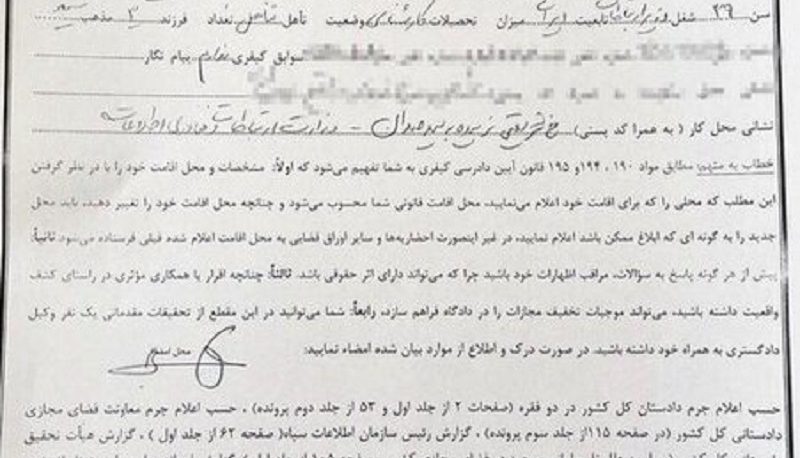 سن ۳۹ شغل وزیر ارتباطات تابعیت ایران میزان تحصیلات کارشناسی وضعیت تأهل متأهل تعداد فرزند ۳ مذهب شیعه
سوابق کیفری ندارم پیام نگار
نشانی محل کار ( به همرا کد پستی) خ شریعتی نرسیده به سیدخندان - وزارت ارتباطات و فناوری اطلاعات
خطاب به متهم: مطابق مواد ۱۹۰ ، ۱۹۴و ۱۹۵ قانون آیین دادرسی کیفری به شما تفهیم می‌شود که اولاً: مشخصات و محل اقامت خود را با در نظر گرفتن
این مطلب که محلی را که برای اقامت خود اعلام می‌نمایید، محل اقامت قانونی شما محسوب می‌شود و چنانچه محل اقامت خود را تغییر دهید، باید محل
جدید را به گونه ای که ابلاغ ممکن باشد اعلام نمایید، در غیر اینصورت احضاریه‌ها و سایر اوراق قضایی به محل اقامت اعلام شده قبلی فرستاده می‌شود ثانیاً:
پیش از هر گونه پاسخ به سؤالات، مراقب اظهارات خود باشید چرا که می‌تواند دارای اثر حقوقی باشد. ثالثاً: چنانچه اقرار یا همکاری مؤثری در راستای کشف
واقعیت داشته باشید، می‌تواند موجبات تخفیف مجازات را در دادگاه فراهم سازد، رابعاً: شما می‌توانید در این مقطع از تحقیقات مقدماتی یک نفر وکیل
دادگستری به همراه خود داشته باشید. در صورت درک و اطلاع از موارد بیان شده امضاء نمایید:
محل امضاء
حسب اعلام جرم دادستان کل کشور در دو فقره (صفحات ۲ از جلد اول و ۵۳ از جلد دوم پرونده) ، حسب اعلام جرم معاونت فضای مجازی
دادستانی کل کشور (در صفحه ۱۱۵از جلد سوم پرونده)، گزارش رئیس سازمان اطلاعات سپاه( صفحه ۶۲ از جلد اول ) ، گزارش هیأت تحقیق